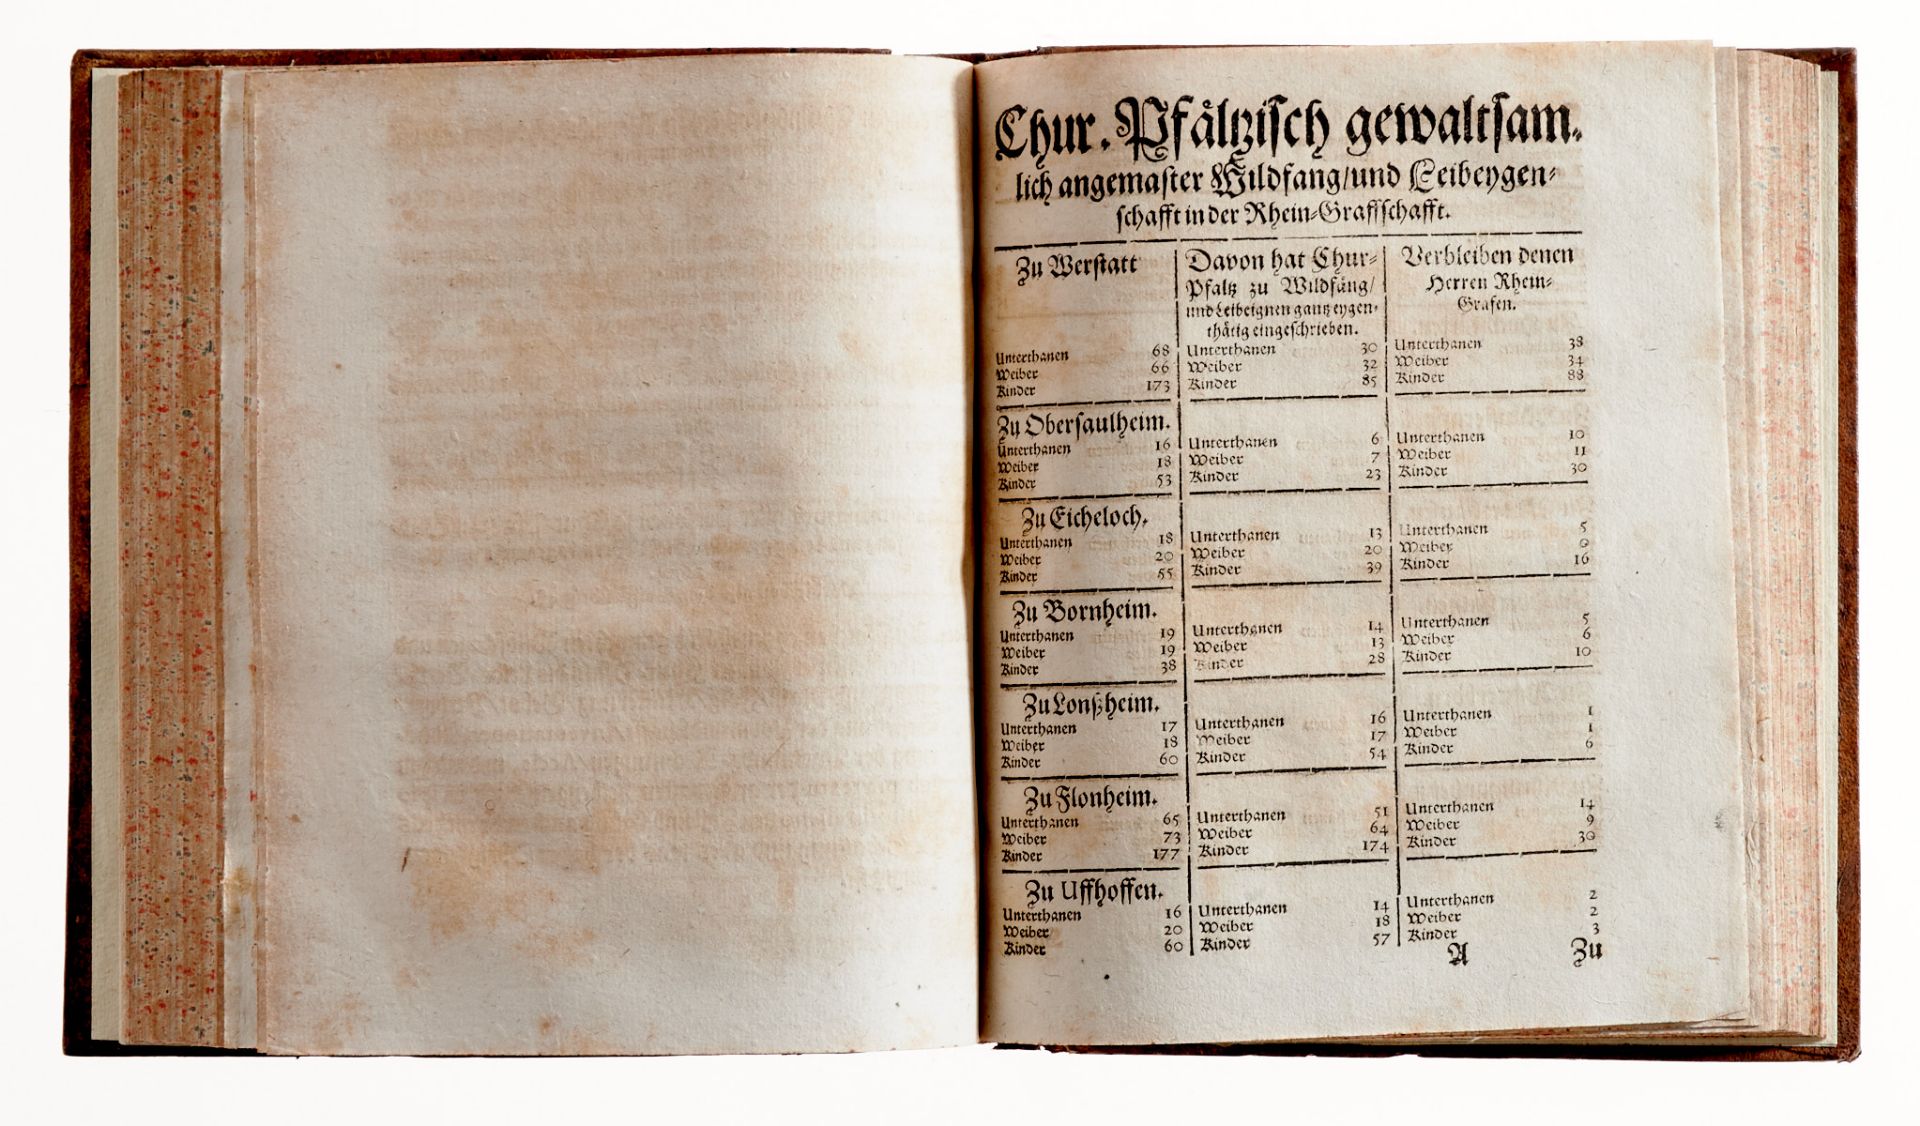 Chur-Pfältzisch gewaltsam-
lich angemaster Wildfang/und Leibeygen-
schafft in der Rhein-Graffschafft.
Zu Werstatt
Unterthanen 68
Weiber 66
Kinder 173
Davon hat Chur-
Pfaltz zu Wildfäng/
und Leibeignen gantz eygen-
thätig eingeschrieben.
Unterthanen 30
Weiber 32
Kinder 85
Verbleiben denen
Herren Rhein-
Grafen.
Unterthanen 38
Weiber 34
Kinder 88
Zu Obersaulheim.
Unterthanen 16
Weiber 18
Kinder 53
Unterthanen 6
Weiber 7
Kinder 23
Unterthanen 10
Weiber 11
Kinder 30
Zu Eicheloch.
Unterthanen 18
Weiber 20
Kinder 55
Unterthanen 13
Weiber 20
Kinder 39
Unterthanen 5
Weiber 0
Kinder 16
Zu Bornheim.
Unterthanen 19
Weiber 19
Kinder 38
Unterthanen 14
Weiber 13
Kinder 28
Unterthanen 5
Weiber 6
Kinder 10
Zu Lonßheim.
Unterthanen 17
Weiber 18
Kinder 60
Unterthanen 16
Weiber 17
Kinder 54
Unterthanen 1
Weiber 1
Kinder 6
Zu Flonheim.
Unterthanen 65
Weiber 73
Kinder 177
Unterthanen 51
Weiber 64
Kinder 174
Unterthanen 14
Weiber 9
Kinder 30
Zu Uffhoffen.
Unterthanen 16
Weiber 20
Kinder 60
Unterthanen 14
Weiber 18
Kinder 57
Unterthanen 2
Weiber 2
Kinder 3
A Zu